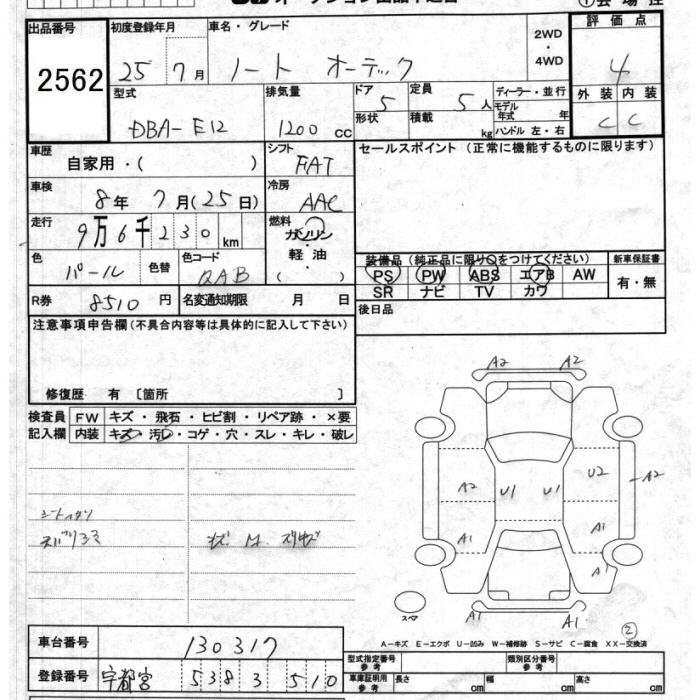 ①会場控
出品番号 初度登録年月 車名・グレード 2WD・4WD 評価点
2562 25 7月 ノート オーテック 4
型式 排気量 ドア 定員 ディーラー・並行 外装 内装
DBA-E12 1200cc 5 5人 モデル年式 年 C C
形状 積載 kg ハンドル 左・右
車歴 シフト セールスポイント(正常に機能するものに限ります)
自家用・( ) FAT
車検 冷房
8年 7月(25日) AAC
走行 燃料
9万6千230km ガソリン・軽油( )
色 色替 色コード 装備品(純正品に限り○をつけてください) 新車保証書
パール QAB PS PW ABS エアB AW 有・無
SR ナビ TV カワ
R券 8510円 名変通知期限 月 日 後日品
注意事項申告欄(不具合内容等は具体的に記入して下さい)
修復歴・有〔箇所 〕
検査員 FW キズ・飛石・ヒビ割・リペア跡・×要
記入欄 内装 キズ・汚レ・コゲ・穴・スレ・キレ・破レ
A2 A2
A2 U1 U1 U2 A2
A1 A1
A1
A1 A1
スペア
②
A-キズ E-エクボ U-凹み W-補修跡 S-サビ C-腐食 XX-交換済
車台番号 130317 型式指定番号 参考 類別区分番号 参考
登録番号 宇都宮 538 3 510 車庫証明用 参考 長さ cm 幅 cm 高さ cm